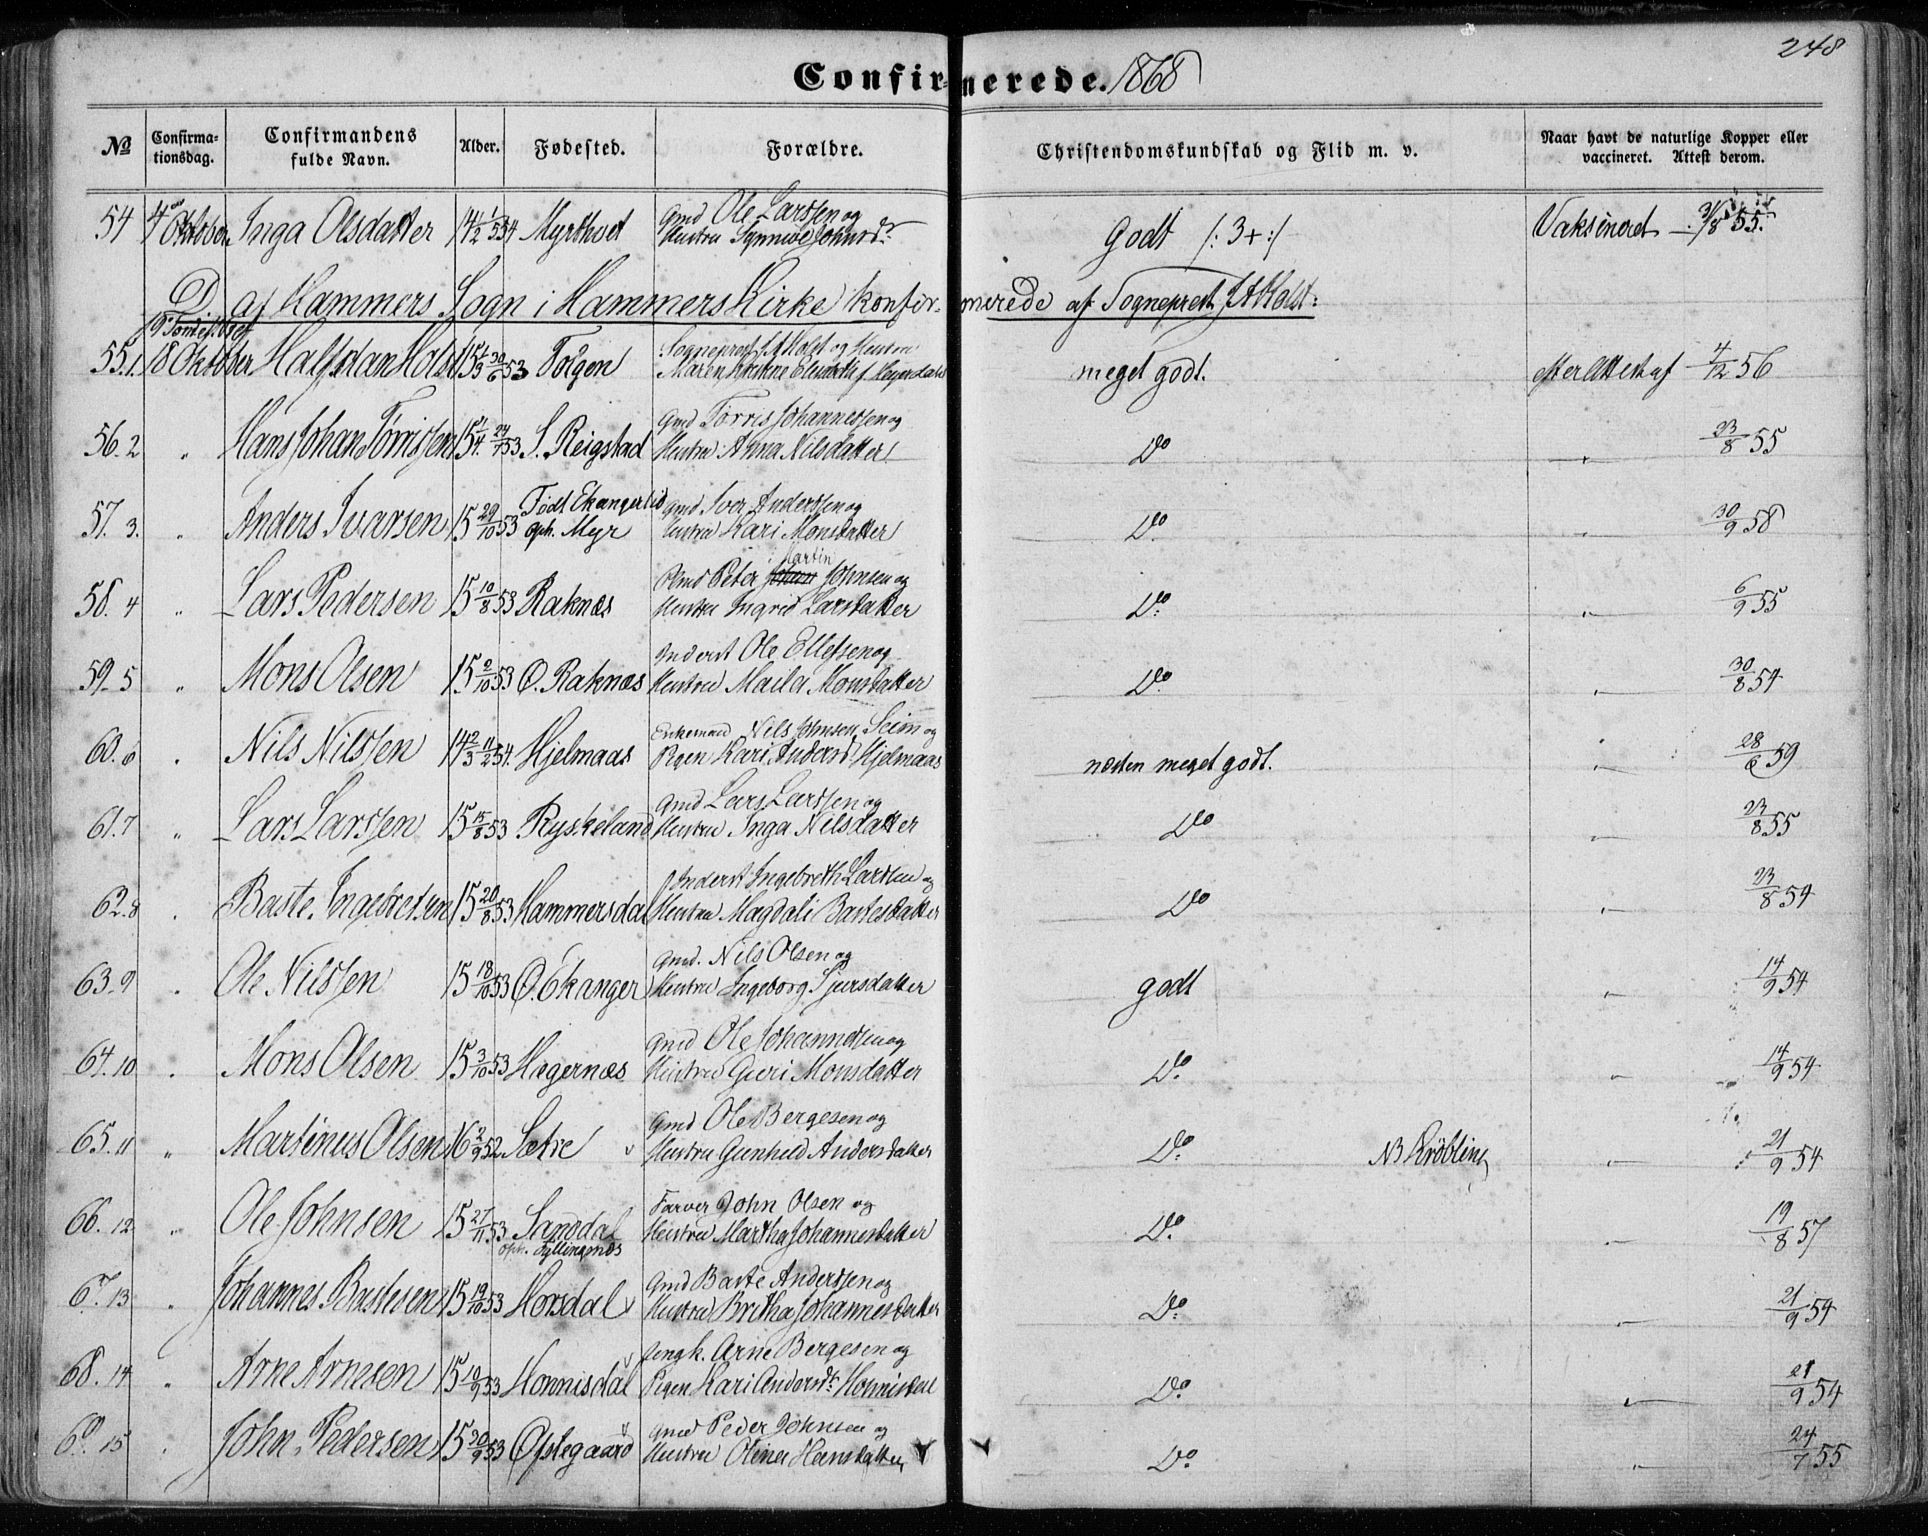 248
Confirmerede. 1868
№ Confirmationsdag. Confirmandens fulde Navn. Alder. Fødested. Forældre. Christendomskundskab og Flid m. v. Naar havt de naturlige Kopper eller vaccineret. Attest derom.
54 4de Oktober Inga Olsdatter 14 1/2 Myrthvet Gmd Ole Larssen og Hustru Synneve Johnsd. Godt /: 3+ :/ Vaksineret 31/8 55.
D. af Hammers Sogn i Hammers Kirke konfirmerede af Sogneprest J A Holst:
55.1 18 Oktober Halfdan Holst 15 1/3 30/6 53 Sogneprest J A Holst og Hustru Maren meget godt. efter Attest af 4/12 56
56.2 " Hans Johan Tørrissen 15 1/4 24/7 53 S. Reigstad Gmd Tørris Johannessen og Hustru Anna Nilsdatter Do " 23/8 55
57.3. " Anders Ivarsen 15 29/10 53 Født Ekangerlid oph. Myr Gmd Iver Anderssen og Hustru Kari Monsdatter Do. 30/9 58
58.4 " Lars Pedersen 15 10/8 53 Raknæs Peter Martin Johnsen og Hustru Ingrid Larsdatter Do: " 6/9 55
59.5 " Mons Olsen 15 2/10 53 O. Raknæs Inderst Ole Ellefsen og Hustru Maila Monsdatter Do. " 30/8 54
60.6 " Nils Nilssen 14 2/3 11/2 54. Hjelmaas Enkemand Nils Johnsen Seim og Pigen Kari Andersd. Hjelmaas næsten meget godt. " 28/6 59
61.7 " Lars Larssen 15 15/8 53 Ryskeland Gmd Lars Larssen og Hustru Inga Nilsdatter Do " 23/8 55
62.8 " Baste Ingebretsen 15 20/8 53 Hammersdal Inderst Ingebreth Larssen og Hustru Magdali Bastesdatter Do " 23/8 54
63.9 " Ole Nilssen 15 18/10 53 O. Ekanger Gmd. Nils Olsen og Hustru Ingeborg Sjursdatter godt " 14/9 54
64.10 " Mons Olsen 15 3/10 53 Hagernæs Gmd Ole Johannessen og Hustru Guri Monsdatter Do. " 14/9 54
65.11 " Martinus Olsen 16 2/9 52 Sætre Gmd Ole Bergesen og Hustru Gunhild Andersdatter Do. NB Krøbling " 21/9 54
66.12 " Ole Johnsen 15 27/11 53 Sanddal oph. Fyllingsnæs Farver John Olsen og Hustru Martha Johannesdatter Do. " 19/8 57
67.13 " Johannes Bastesen 15 19/10 53 Horsdal Gmd Baste Anderssen og Hustru Britha Johannesdatter Do. " 21/9 54
68.14 " Arne Arnesen 15 10/9 53 Honnisdal Ungk. Arne Bergesen og Pigen Kari Andersd. Honnisdal Do. " 21/9 54
69.15 " John Pedersen 15 20/9 53 Opstegaard Gmd Peder Johnsen og Hustru Olina Hansdatter Do. " 24/7 55